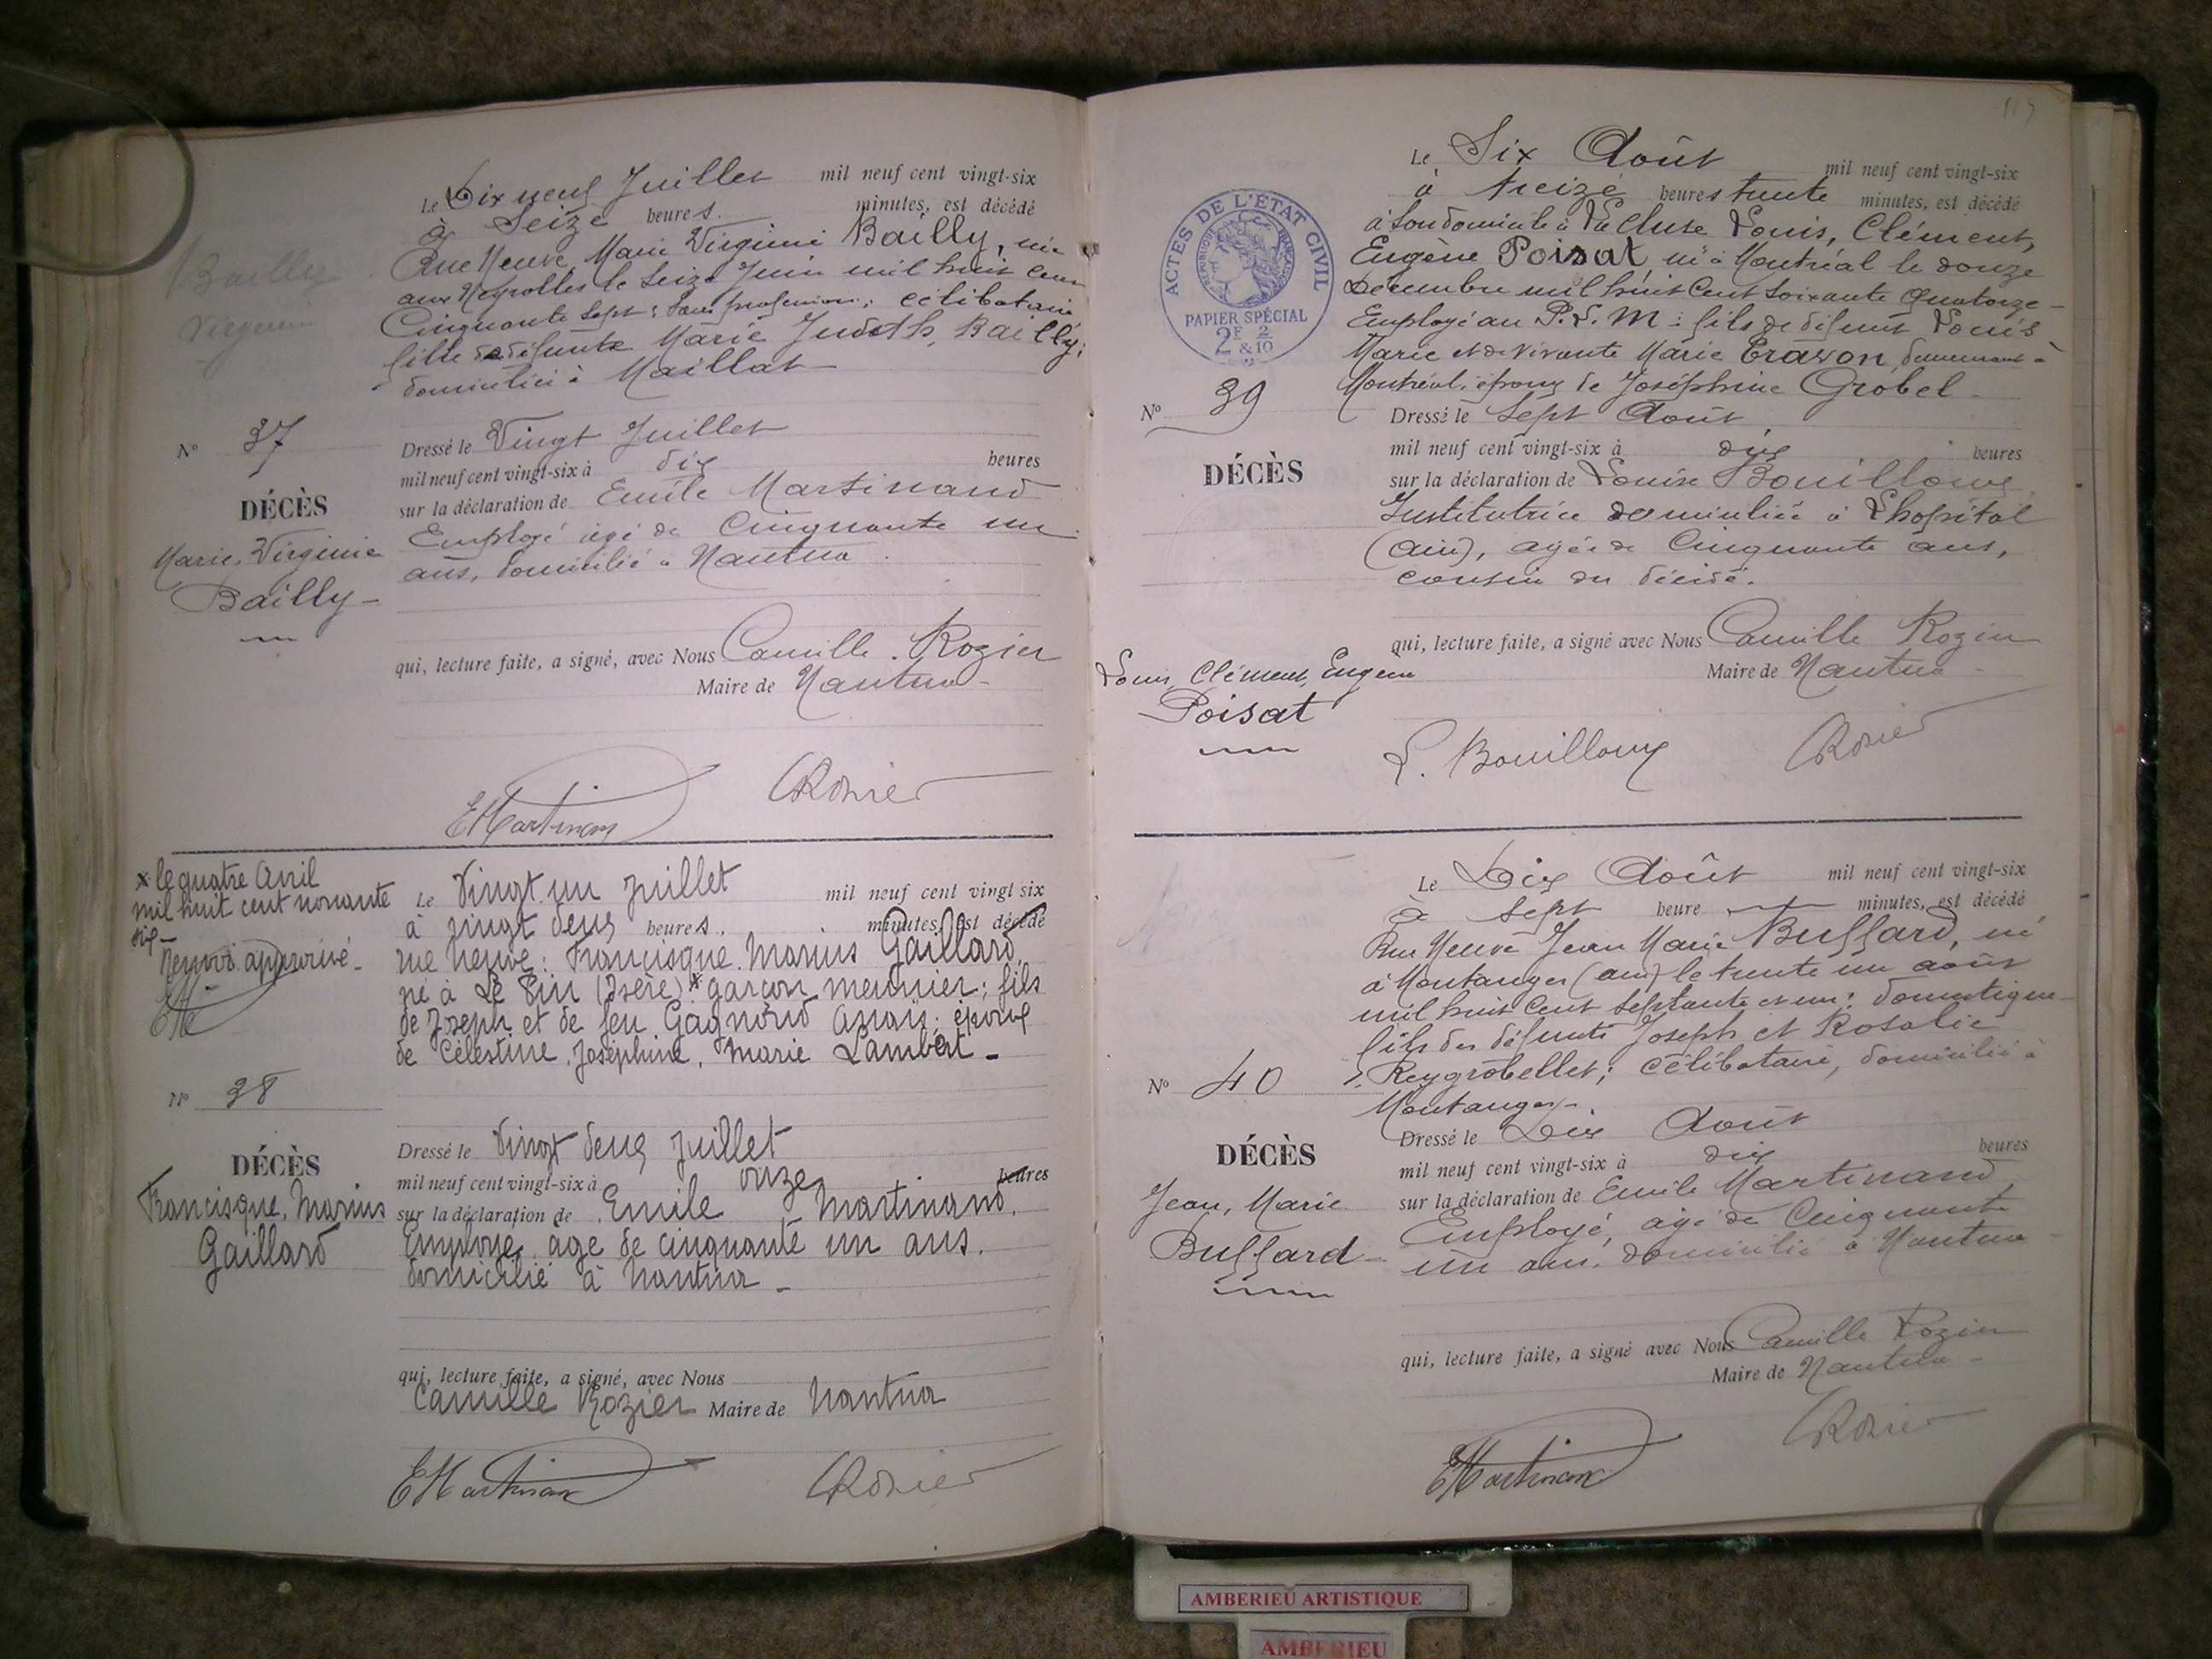 Bailly
Virginie
Le Dix neuf Juillet mil neuf cent vingt-six
à Seize heures. minutes, est décédé
Rue Neuve Marie Virginie Bailly, née
aux Neyrolles le Seize Juin mil huit cent
Cinquante Sept; sans profession; célibataire
fille de défunte Marie Judith, Bailly;
domiciliée à Maillat
No 37
DÉCÈS
Marie, Virginie
Bailly
Dressé le Vingt Juillet
mil neuf cent vingt-six à dix heures
sur la déclaration de Emile Martinand
Employé âgé de Cinquante un
ans, domicilié à Nantua
qui, lecture faite, a signé, avec Nous Camille Rozier
Maire de Nantua
EMartinand CRozier
x le quatre Avril
mil huit cent nonante
six
Renvoi approuvé
Le Vingt un Juillet mil neuf cent vingt six
à vingt deux heures. minutes, est décédé
rue neuve: Francisque. Marius Gaillard,
né à Le Pin (Isère) x garçon meunier; fils
de Joseph et de feu Gagnoud Anaïs; époux
de Célestine, Joséphine, Marie Lambert
No 38
DÉCÈS
Francisque, Marius
Gaillard
Dressé le Vingt deux Juillet
mil neuf cent vingt-six à onze heures
sur la déclaration de Emile Martinand,
Employé, âgé de cinquante un ans.
domicilié à Nantua
qui, lecture faite, a signé, avec Nous
Camille Rozier Maire de Nantua
EMartinand CRozier
ACTES DE L'ÉTAT CIVIL
RÉPUBLIQUE FRANÇAISE
PAPIER SPÉCIAL
2F & 2/10
Le Six Août mil neuf cent vingt-six
à treize heures trente minutes, est décédé
à son domicile à La Cluse Louis, Clément,
Eugène Poisat né à Montréal le douze
Décembre mil huit Cent soixante Quatorze
Employé au P.L.M: fils de défunt Louis
Marie et de vivante Marie demeurant à
Montréal, époux de Joséphine Grobel
No 39
DÉCÈS
Louis, Clément, Eugène
Poisat
Dressé le Sept Août
mil neuf cent vingt-six à dix heures
sur la déclaration de Louise Bouilloux
Institutrice domiciliée à Lhopital
(Ain), âgée de Cinquante ans,
cousin du décédé.
qui, lecture faite, a signé avec Nous Camille Rozier
Maire de Nantua
L. Bouilloux CRozier
Le Dix Août mil neuf cent vingt-six
à Sept heure minutes, est décédé
Rue Neuve Jean Marie Buffard, né
à Montanges (Ain) le trente un août
mil huit Cent Septante et un; domestique
fils des défunts Joseph et Rosalie
Reygrobellet; célibataire, domicilié à
Montanges
No 40
DÉCÈS
Jean, Marie
Buffard
Dressé le Dix Août
mil neuf cent vingt-six à dix heures
sur la déclaration de Emile Martinand,
Employé, âgé de Cinquante
un ans. domicilié à Nantua
qui, lecture faite, a signé avec Nous Camille Rozier
Maire de Nantua
EMartinand CRozier
AMBERIEU ARTISTIQUE
AMBERIEU